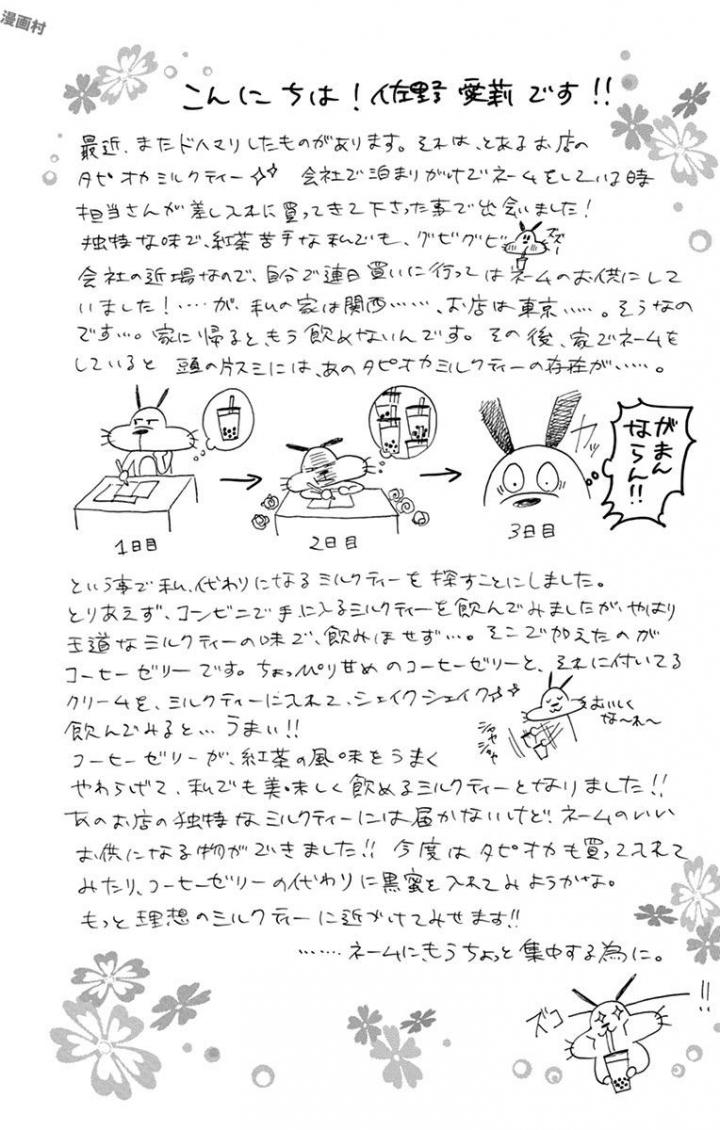 漫画村
こんにちは！佐野愛莉です!!
最近、またドハマりしたものがあります。それは、とあるお店の
タピオカミルクティー 会社で泊まりがけでネームをしている時
担当さんが差し入れに買ってきて下さった事で出会いました！
独特な味で、紅茶苦手な私でも、グビグビ
ズズー
会社の近場なので、自分で連日買いに行ってはネームのお供にして
いました！‥‥が、私の家は関西‥‥‥、お店は東京‥‥‥。そうなの
です‥‥。家に帰るともう飲めないんです。その後、家でネームを
していると頭の片スミには、あのタピオカミルクティーの存在が‥‥‥。
カッ
がまん
ならん!!
1日目
2日目
3日目
という事で私、代わりになるミルクティーを探すことにしました。
とりあえず、コンビニで手に入るミルクティーを飲んでみましたが、やはり
王道なミルクティーの味で、飲みほせず‥‥。そこで加えたのが
コーヒーゼリーです。ちょっぴり甘めのコーヒーゼリーと、それに付いてる
クリームを、ミルクティーに入れて、シェイクシェイク
おいしく
な〜れ〜
シャカ
シャカ
飲んでみると‥‥うまい!!
コーヒーゼリーが、紅茶の風味をうまく
やわらげて、私でも美味しく飲めるミルクティーとなりました!!
あのお店の独特なミルクティーには届かないけど、ネームのいい
お供になる物ができました!! 今度はタピオカも買って入れて
みたり、コーヒーゼリーの代わりに黒蜜を入れてみようかな。
もっと理想のミルクティーに近づけてみせます!!
‥‥‥ネームに、もうちょっと集中する為に。
ズコー
!!